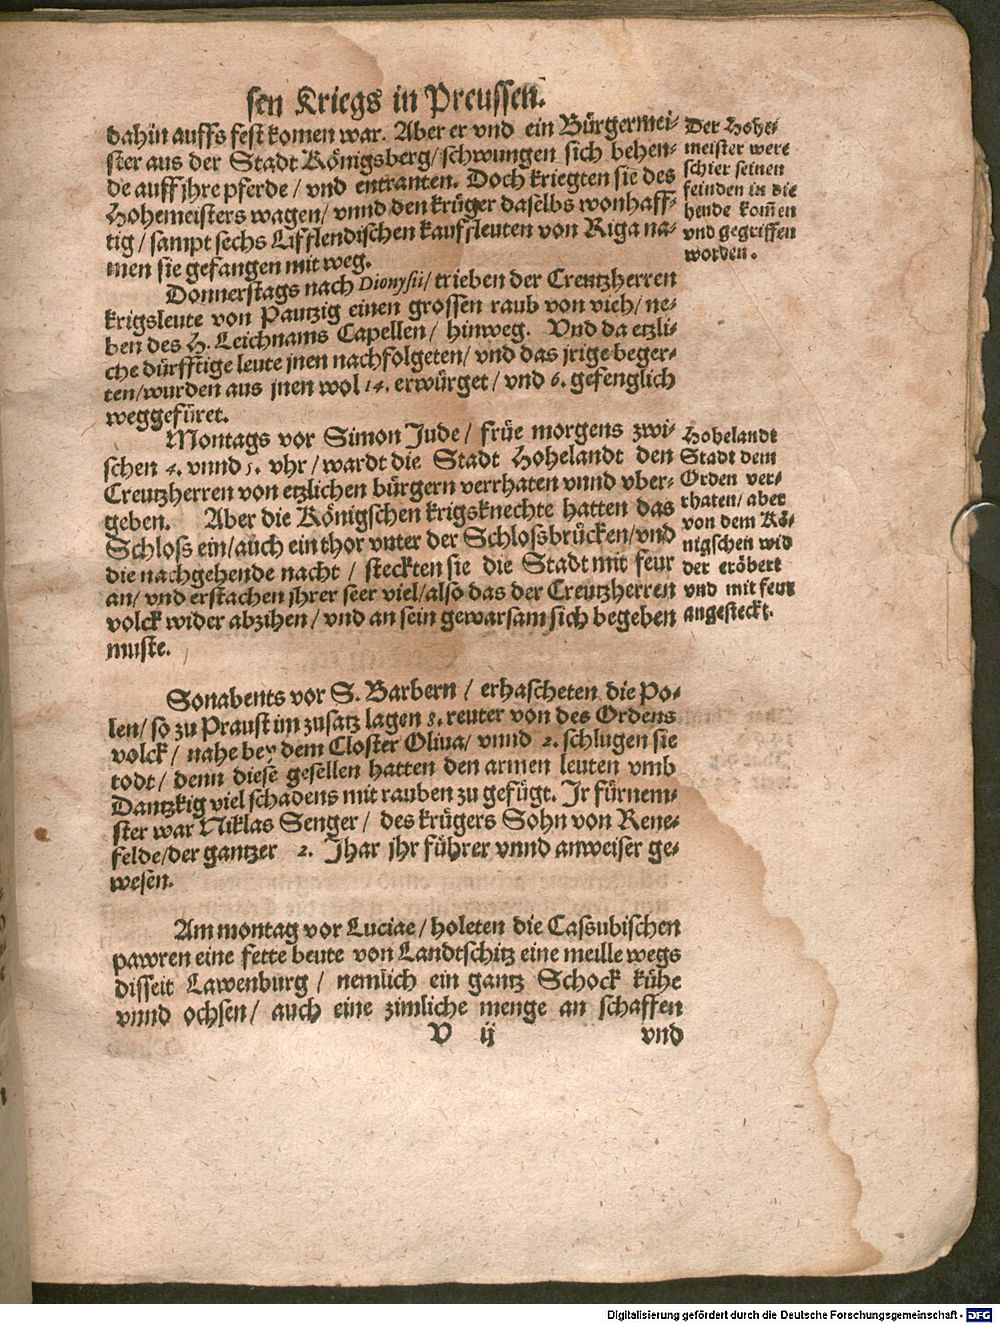 sen Kriegs in Preussen.
dahin auffs fest komen war. Aber er vnd ein Bürgermei-
ster aus der Stadt Königsberg/ schwungen sich behen-
de auff jhre pferde / vnd entranten. Doch kriegten sie des
Hohemeisters wagen/ vnnd den krüger daselbs wonhaff-
tig / sampt sechs Lifflendischen kauffleuten von Riga na-
men sie gefangen mit weg.
Der Hohe-
meister were
schier seinen
feinden in die
hende kom̄en
vnd gegriffen
worden.
Donnerstags nach Dionysii/ trieben der Creutzherren
krigsleute von Pautzig einen grossen raub von vieh/ ne-
ben des H. Leichnams Capellen / hinweg. Vnd da etzli-
che dürfftige leute jnen nachfolgeten/ vnd das jrige beger-
ten/ wurden aus jnen wol 14. erwürget / vnd 6. gefenglich
weggefüret.
Montags vor Simon Jude / früe morgens zwi-
schen 4. vnnd 5. vhr / wardt die Stadt Hohelandt den
Creutzherren von etzlichen bürgern verrhaten vnnd vber-
geben. Aber die Königschen krigsknechte hatten das
Schloss ein/ auch ein thor vnter der Schlossbrücken/ vnd
die nachgehende nacht / steckten sie die Stadt mit feur
an/ vnd erstachen jhrer seer viel/ also das der Creutzherren
volck wider abzihen / vnd an sein gewarsam sich begeben
muste.
Hohelandt
Stadt dem
Orden ver-
rhaten/ aber
von dem Kö-
nigschen wid
der eröbert
vnd mit feur
angesteckt.
Sonabents vor S. Barbern / erhascheten die Po-
len/ so zu Praust im zusatz lagen 8. reuter von des Ordens
volck / nahe bey dem Closter Oliua/ vnnd 2. schlugen sie
todt / denn diese gesellen hatten den armen leuten vmb
Dantzkig viel schadens mit rauben zu gefügt. Jr fürnem-
ster war Niklas Senger / des krügers Sohn von Rene-
felde/ der gantzer 2. Jhar jhr führer vnnd anweiser ge-
wesen.
Am montag vor Luciae / holeten die Cassubischen
pawren eine fette beute von Landtschitz eine meille wegs
disseit Lawenburg / nemlich ein gantz Schock kühe
vnnd ochsen / auch eine zimliche menge an schaffen
V ij vnd
Digitalisierung gefördert durch die Deutsche Forschungsgemeinschaft - DFG